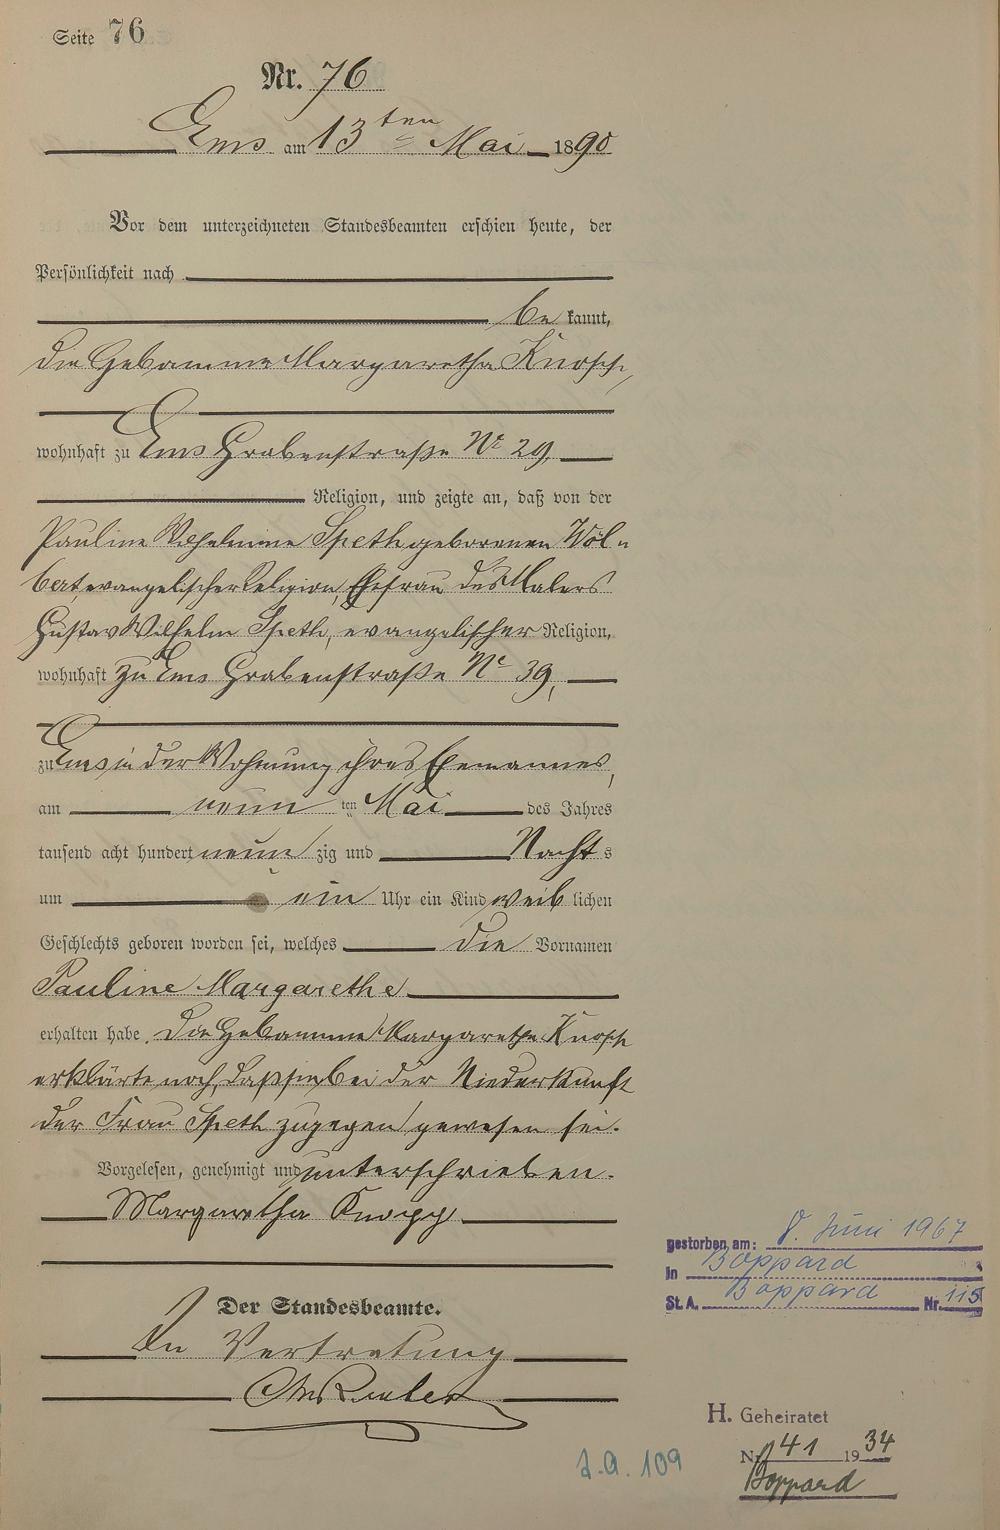 Seite 76
Nr. 76
Ems am 13ten Mai 1890
Vor dem unterzeichneten Standesbeamten erschien heute, der
Persönlichkeit nach
be kannt,
die Hebamme Margaretha Knopp,
wohnhaft zu Ems Grabenstraße No 29,
Religion, und zeigte an, daß von der
Pauline Wilhelmine Speth geborenen Wol-
bert, evangelischer Religion, Ehefrau des Malers
Gustav Wilhelm Speth, evangelischer Religion,
wohnhaft zu Ems Grabenstraße No 39,
zu Ems in der Wohnung ihres Ehemannes,
am neun ten Mai des Jahres
tausend acht hundert neun zig und Nacht s
um ein Uhr ein Kind weib lichen
Geschlechts geboren worden sei, welches die Vornamen
Pauline Margarethe
erhalten habe. Die Hebamme Margaretha Knopp
erklärte noch, daß sie bei der Niederkunft
der Frau Speth zugegen gewesen sei.
Vorgelesen, genehmigt und unterschrieben.
Margaretha Knopp
Der Standesbeamte.
In Vertretung
gestorben am: 8. Juni 1967
in Boppard
St.A. Boppard Nr. 115
H. Geheiratet
Nr. 41 1934
Boppard
109